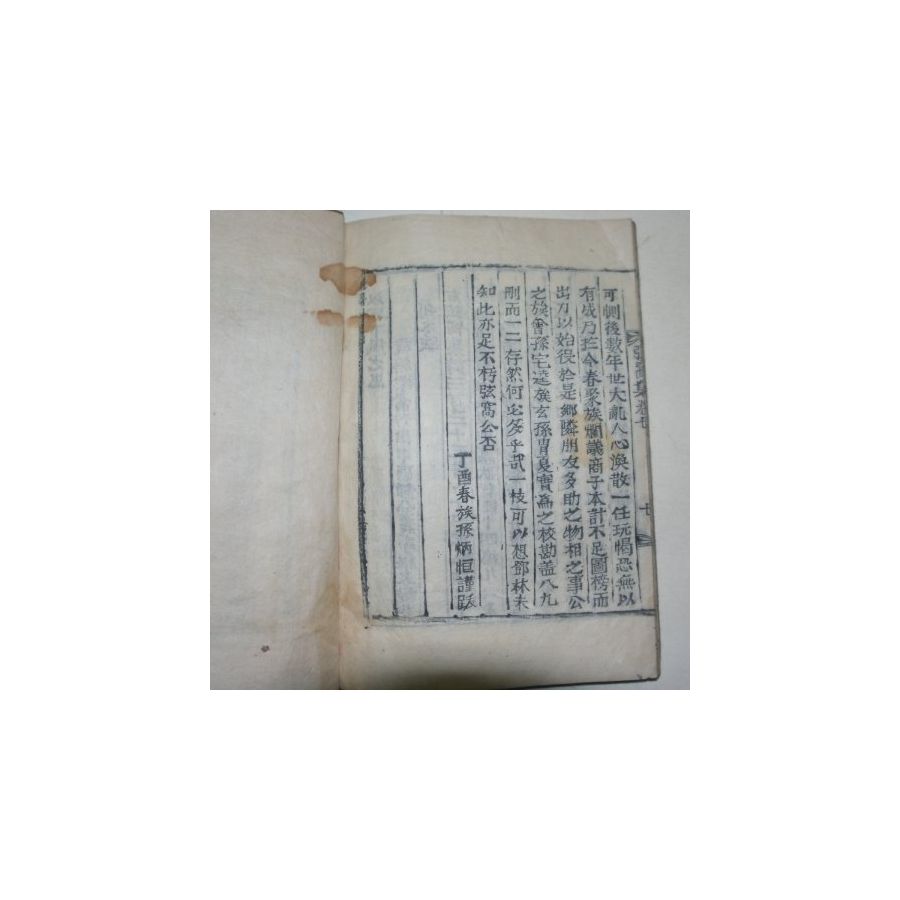 可惻後數年世大亂人心渙散一任玩愒恐無以
有成乃於今春聚族爛議商子本計不足圖榜而
出刀以始役於是鄕隣朋友多助之物相之事公
之族曾孫宅逵族玄孫胄夏寶爲之校勘盖八九
刪而一二存然何必多乎哉一枝可以想鄧林未
知此亦足不朽弦窩公否
丁酉春族孫炳恒謹跋
弦窩集卷七
七